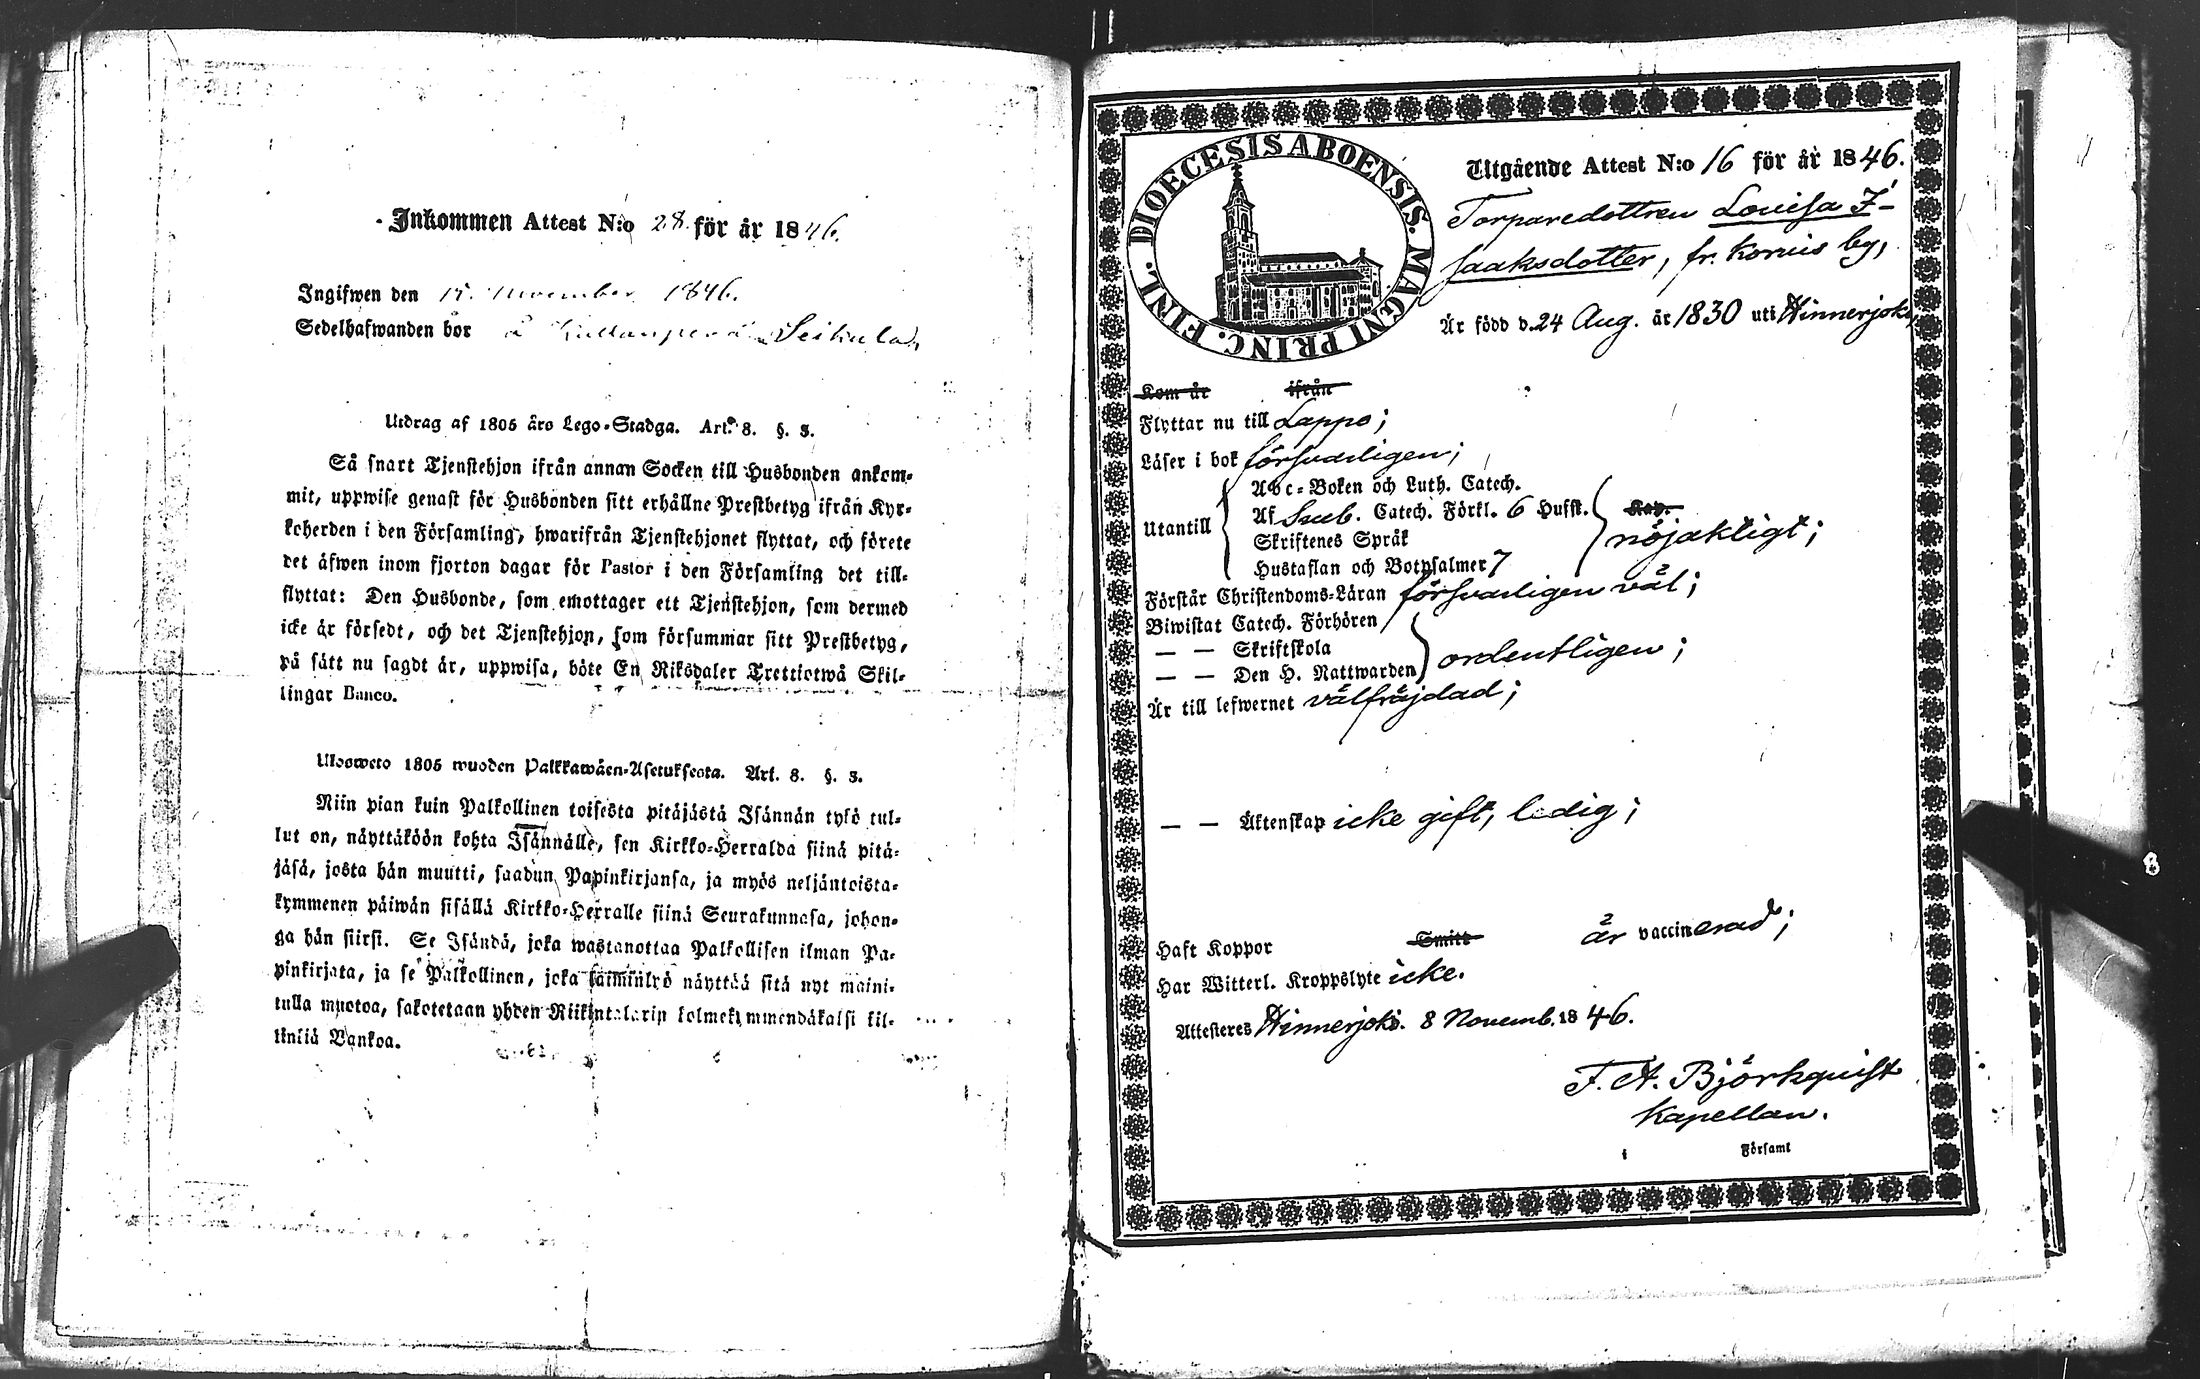 Inkommen Attest N:o 28 för år 1846.
Ingifwen den 15. November 1846.
Sedelhafwanden bor å Seikula,
Utdrag af 1805 års Lego-Stadga. Art. 8. §. 3.
Så snart Tjenstehjon ifrån annan Socken till Husbonden ankom-
mit, uppwise genast för Husbonden sitt erhållne Prestbetyg ifrån Kyr-
koherden i den Församling, hwarifrån Tjenstehjonet flyttat, och förete
det äfwen inom fjorton dagar för Pastor i den Församling det till-
flyttat: Den Husbonde, som emottager ett Tjenstehjon, som dermed
icke är försedt, och det Tjenstehjon, som försummar sitt Prestbetyg,
på sätt nu sagdt är, uppwisa, böte En Riksdaler Trettiotwå Skil-
lingar Banco.
Ulosweto 1805 wuoden Palkkawäen-Asetuksesta. Art. 8. §. 3.
Niin pian kuin Palkollinen toisesta pitäjästä Isännän tykö tul-
lut on, näyttäköön kohta Isännälle, sen Kirkko-Herralda siinä pitä-
jäsä, josta hän muutti, saadun Papinkirjansa, ja myös neljäntoista-
kymmenen päiwän sisällä Kirkko-Herralle siinä Seurakunnasa, johon-
ga hän siirsi. Se Isändä, joka wastanottaa Palkollisen ilman Pa-
pinkirjata, ja se Palkollinen, joka laiminlyö näyttää sitä nyt maini-
tulla muotoa, sakotetaan yhden Riikintalarin kolmekymmendäkaksi kil-
linkiä Bankoa.
DIOECESIS ABOENSIS. MAGNI PRINC. FINL.
Utgående Attest N:o 16 för år 1846.
Torparedottren Lovisa I-
saaksdotter, fr. Korvis by,
Är född d. 24 Aug. år 1830 uti Hinnerjoki,
Kom år ifrån
Flyttar nu till Lappo;
Läser i bok försvarligen;
Abc-Boken och Luth. Catech.
Utantill Af Sveb. Catech. Förkl. 6 Hufst. Kap. nöjaktigt;
Skriftenes Språk
Hustaflan och Botpsalmer 7
Förstår Christendoms-Läran försvarligen väl;
Biwistat Catech. Förhören
— — Skriftskola ordentligen;
— — Den H. Nattwarden
Är till lefwernet välfräjdad;
— — Äktenskap icke gift, ledig;
Haft Koppor Smitt är vaccinerad;
Har Witterl. Kroppslyte icke.
Attesteres Hinnerjoki. 8 Novemb. 1846.
F. A. Björkquist
Kapellan.
i Församl